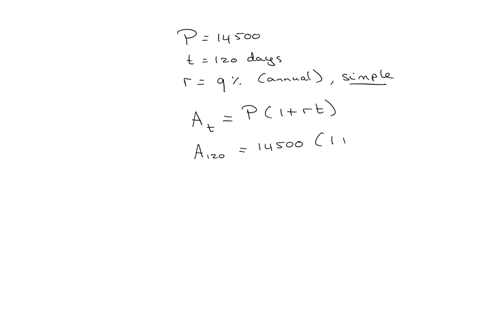 P = 14500
t = 120 days
r = 9% (annual), simple
A_t = P(1+rt)
A_120 = 14500 (1 1